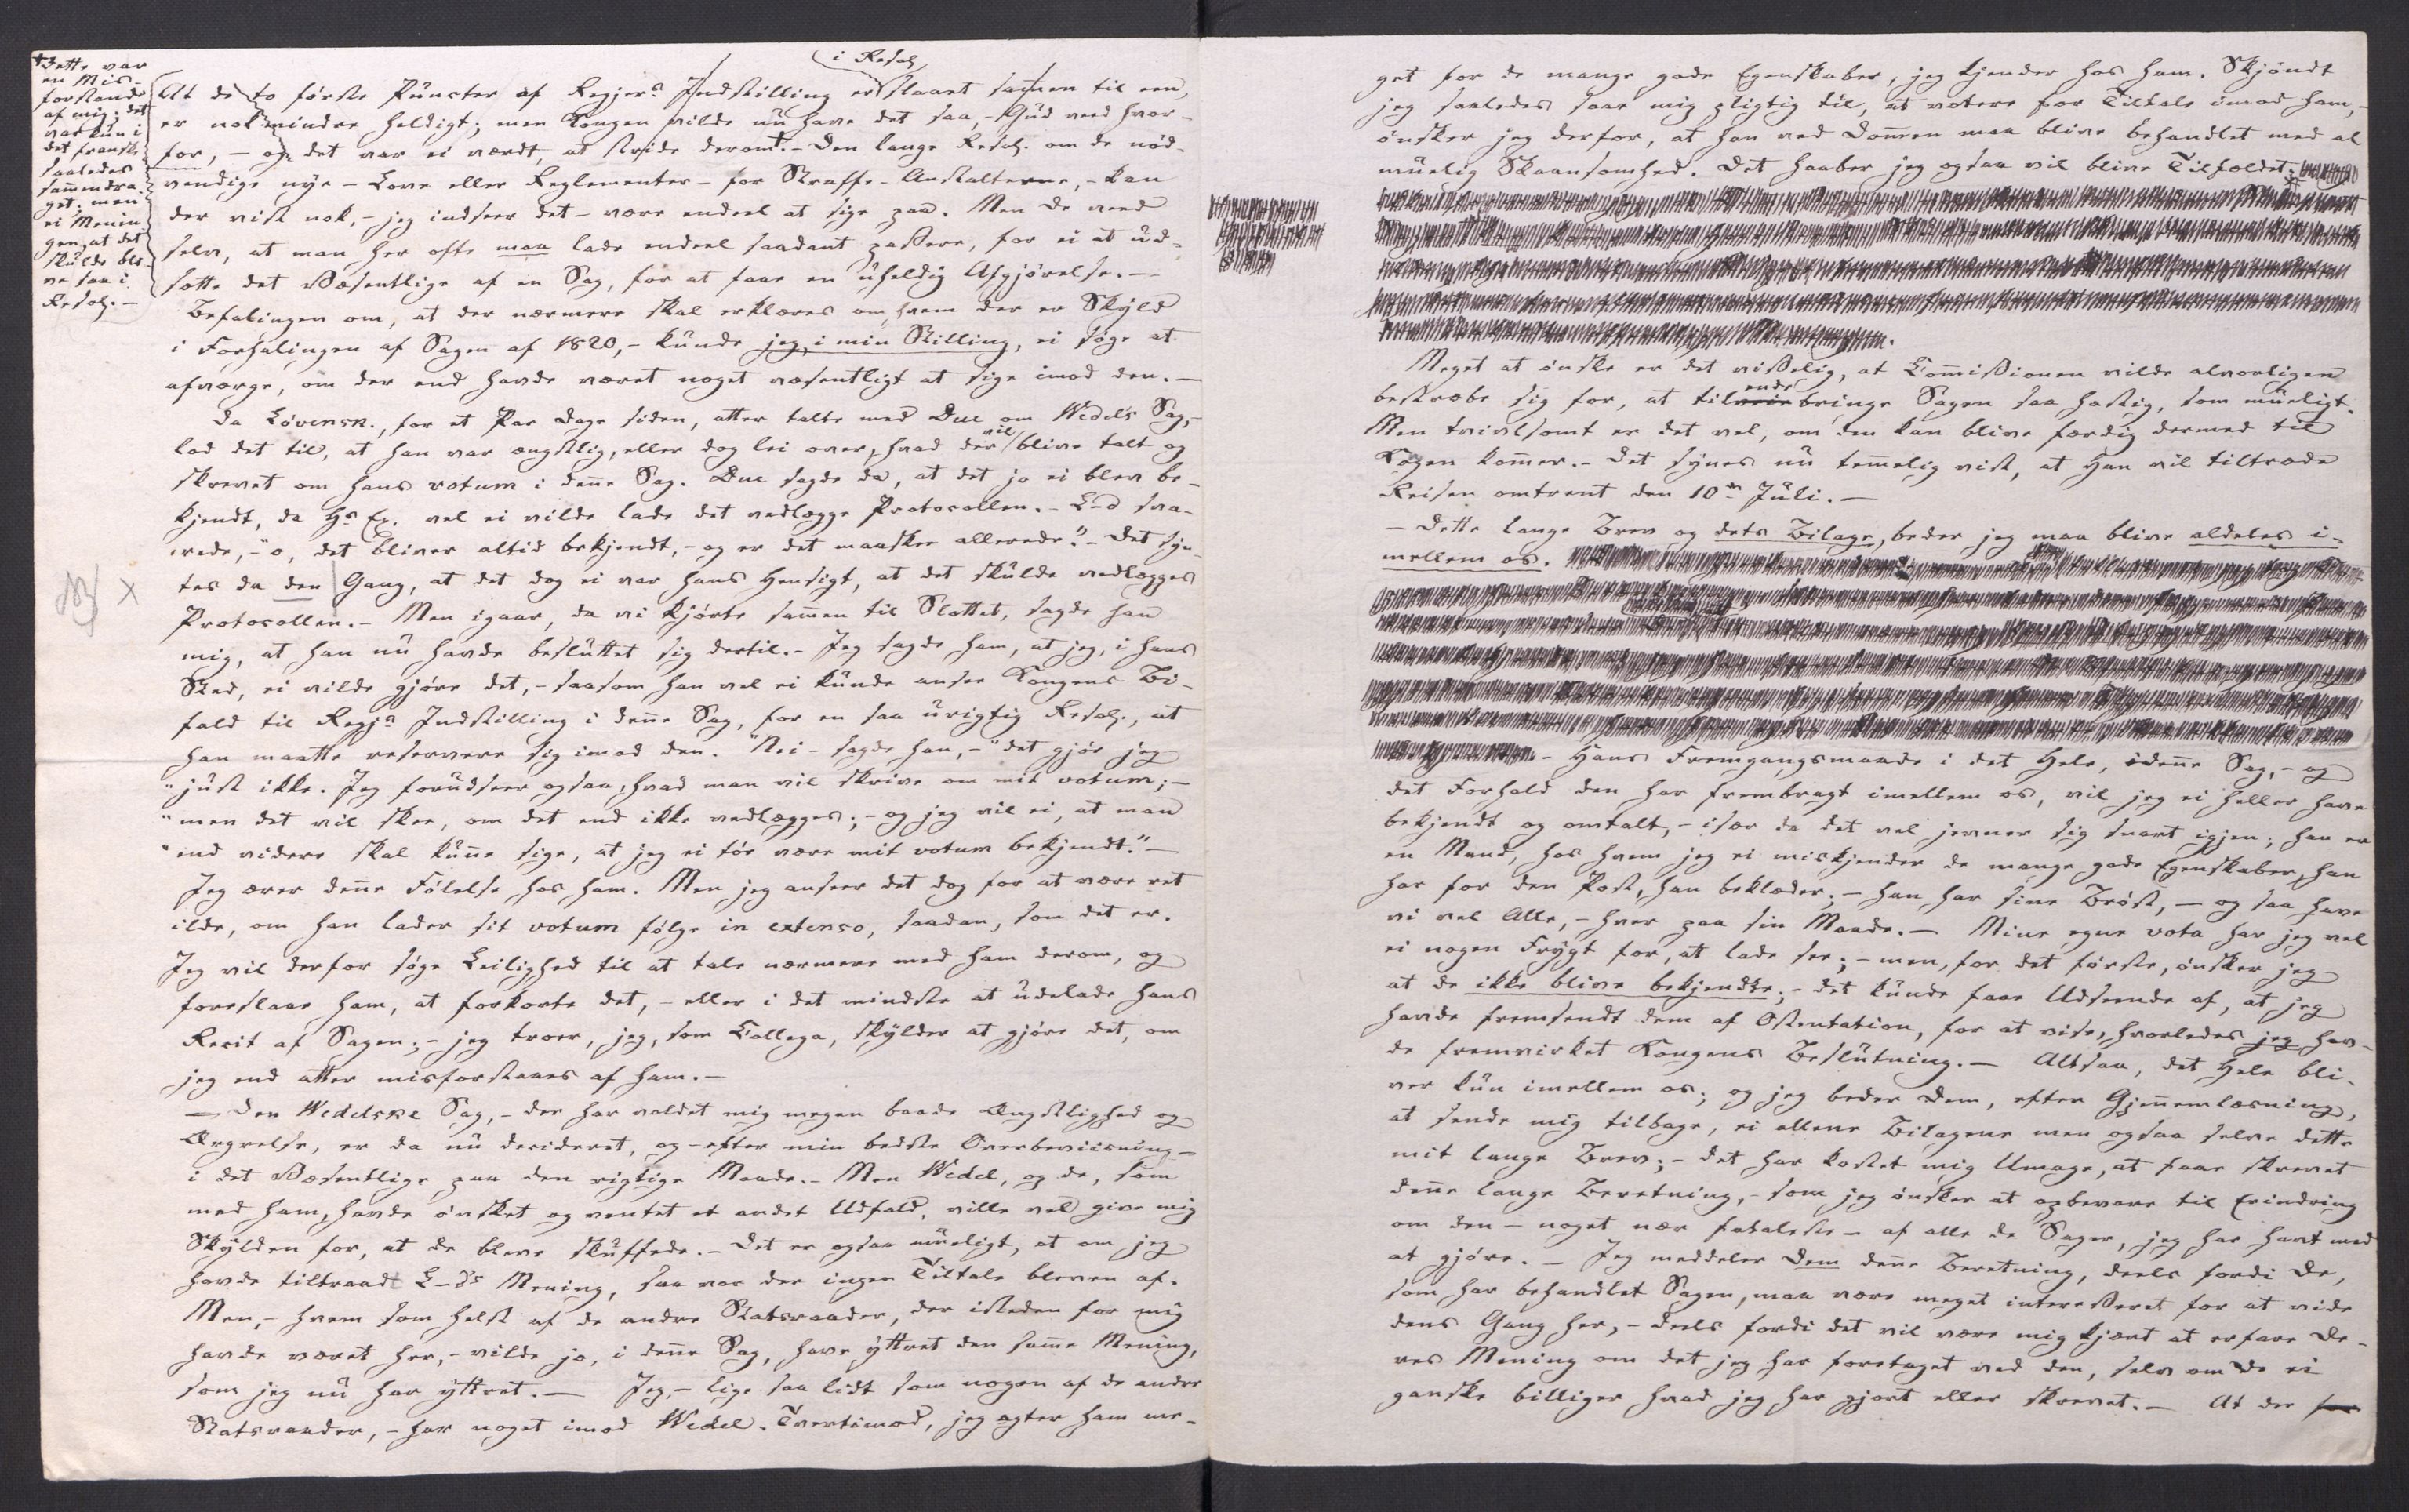 + Dette var
en Mis-
forstand
af mig; det
var kun i
det franske
saaledes
sammendra-
get; men
ei Menin-
gen, at det
skulde bli-
ve saa i
Resol. –
i Resol.
At de to første Puncter af Regjers Indstilling er slaaet sammen til een,
er nok mindre heldigt; men Kongen vilde nu have det saa, – Gud veed hvor-
for, – og det var ei værdt, at stride derom+. – Den lange Resol. om de nød-
vendige nye – Love eller Reglementer – for Straffe-Anstalterne, – kan
der vist nok, – jeg indseer det – være endeel at sige paa. Men De veed
selv, at man her ofte maa lade endeel saadant passere, for ei at ud-
sætte det Væsentlige af en Sag, for at faae en uheldig Afgjörelse. –
Befalingen om, at der nærmere skal erklæres om, hvem der er Skyld
i Forhalingen af Sagen af 1820, – kunde jeg, i min Stilling, ei söge at
afværge, om der end havde været noget væsentligt at sige imod den. –
Da Lövensk., for et Par Dage siden, atter talte med Due om Wedels Sag,
lod det til, at han var ængstlig, eller dog lei over, hvad der vil blive talt og
skrevet om hans votum i denne Sag. Due sagde da, at det jo ei blev be-
kjendt, da Hs Ex. vel ei vilde lade det vedlægge Protocollen. – L–d sva-
rede, – "o, det bliver altid bekjendt, – og er det maaskee allerede". – Det syn-
tes da den Gang, at det dog ei var hans Hensigt, at det skulde vedlægges
Protocollen. – Men igaar, da vi kjörte sammen til Slottet, sagde han
mig, at han nu havde besluttet sig dertil. – Jeg sagde ham, at jeg, i hans
Sted, ei vilde gjöre det, – saasom han vel ei kunde ansee Kongens Bi-
fald til Regjs Indstilling i denne Sag, for en saa urigtig Resol., at
han maatte reservere sig imod den. "Nei – sagde han, – "det gjör jeg
"just ikke. Jeg forudseer ogsaa, hvad man vil skrive om mit votum; –
"men det vil skee, om det end ikke vedlægges; – og jeg vil ei, at man
"end videre skal kunne sige, at jeg ei tör være mit votum bekjendt." –
Jeg ærer denne Fölelse hos ham. Men jeg anseer det dog for at være ret
ilde, om han lader sit votum fölge in extenso, saadan, som det er.
Jeg vil derfor söge Leilighed til at tale nærmere med ham derom, og
foreslaae ham, at forkorte det, – eller i det mindste at udelade hans
Recit af Sagen; – jeg troer, jeg, som Collega, skylder at gjöre det, om
jeg end atter misforstaaes af ham. –
– Den Wedelske Sag, – der har voldet mig megen baade Ængstlighed og
Ærgrelse, er da nu decideret, og – efter min bedste Overbeviisning –
i det Væsentlige paa den rigtige Maade. – Men Wedel, og de, som
med ham, havde önsket og ventet et andet Udfald, ville vel give mig
Skylden for, at de bleve skuffede. – Det er ogsaa mueligt, at om jeg
havde tiltraadt L–ds Mening, saa var der ingen Tiltale bleven af.
Men, – hvem som helst af de andre Statsraader, der isteden for mig
havde været her, – vilde jo, i denne Sag, have yttret den samme Mening,
som jeg nu har yttret. – Jeg, – lige saa lidt som nogen af de andre
Statsraader, – har noget imod Wedel. Tvertimod, jeg agter ham me-
get for de mange gode Egenskaber, jeg kjender hos ham. Skjöndt
jeg saaledes saae mig pligtig til, at votere for Tiltale imod ham, –
önsker jeg derfor, at han ved Dommen maa blive behandlet med al
muelig Skaansomhed. Det haaber jeg ogsaa vil blive Tilfældet.
Meget at önske er det visselig, at Commissionen vilde alvorligen
bestræbe sig for, at tilendebringe Sagen saa hastig, som mueligt.
Men tvivlsomt er det vel, om den kan blive færdig dermed til
Kongen kommer. – Det synes nu temmelig vist, at Han vil tiltræde
Reisen omtrent den 10de Juli. –
– Dette lange Brev og dets Bilage, beder jeg maa blive aldeles i-
mellem os.
– Hans Fremgangsmaade i det Hele, i denne Sag, – og
det Forhold den har frembragt imellem os, vil jeg ei heller have
bekjendt og omtalt, – især da det vel jevner sig snart igjen; han er
en Mand, hos hvem jeg ei miskjender de mange gode Egenskaber, han
har for den Post, han beklæder; – han har sine Bröst, – og saa have
vi vel Alle, – hver paa sin Maade. – Mine egne vota har jeg vel
ei nogen Frygt for, at lade see; – men, for det förste, önsker jeg
at de ikke blive bekjendte; – det kunde faae Udseende af, at jeg
havde fremsendt dem af Ostentation, for at vise, hvorledes jeg hav-
de fremvirket Kongens Beslutning. – Altsaa, det Hele bli-
ver kun imellem os; og jeg beder Dem, efter Gjennemlæsning,
at sende mig tilbage, ei allene Bilagene men ogsaa selve dette
mit lange Brev; – det har kostet mig Umage, at faae skrevet
denne lange Beretning, – som jeg önsker at opbevare til Erindring
om den – noget nær fataleste – af alle de Sager, jeg har havt med
at gjöre. – Jeg meddeler Dem denne Beretning, deels fordi De,
som har behandlet Sagen, maa være meget interesseret for at vide
dens Gang her, – deels fordi det vil være mig kjært at erfare De-
res Mening om det jeg har foretaget ved den, selv om De ei
ganske billiger hvad jeg har gjort eller skrevet. – At der